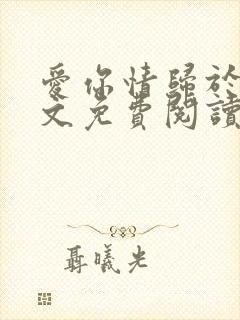 愛你情歸於
文免費閱讀
聶曦光